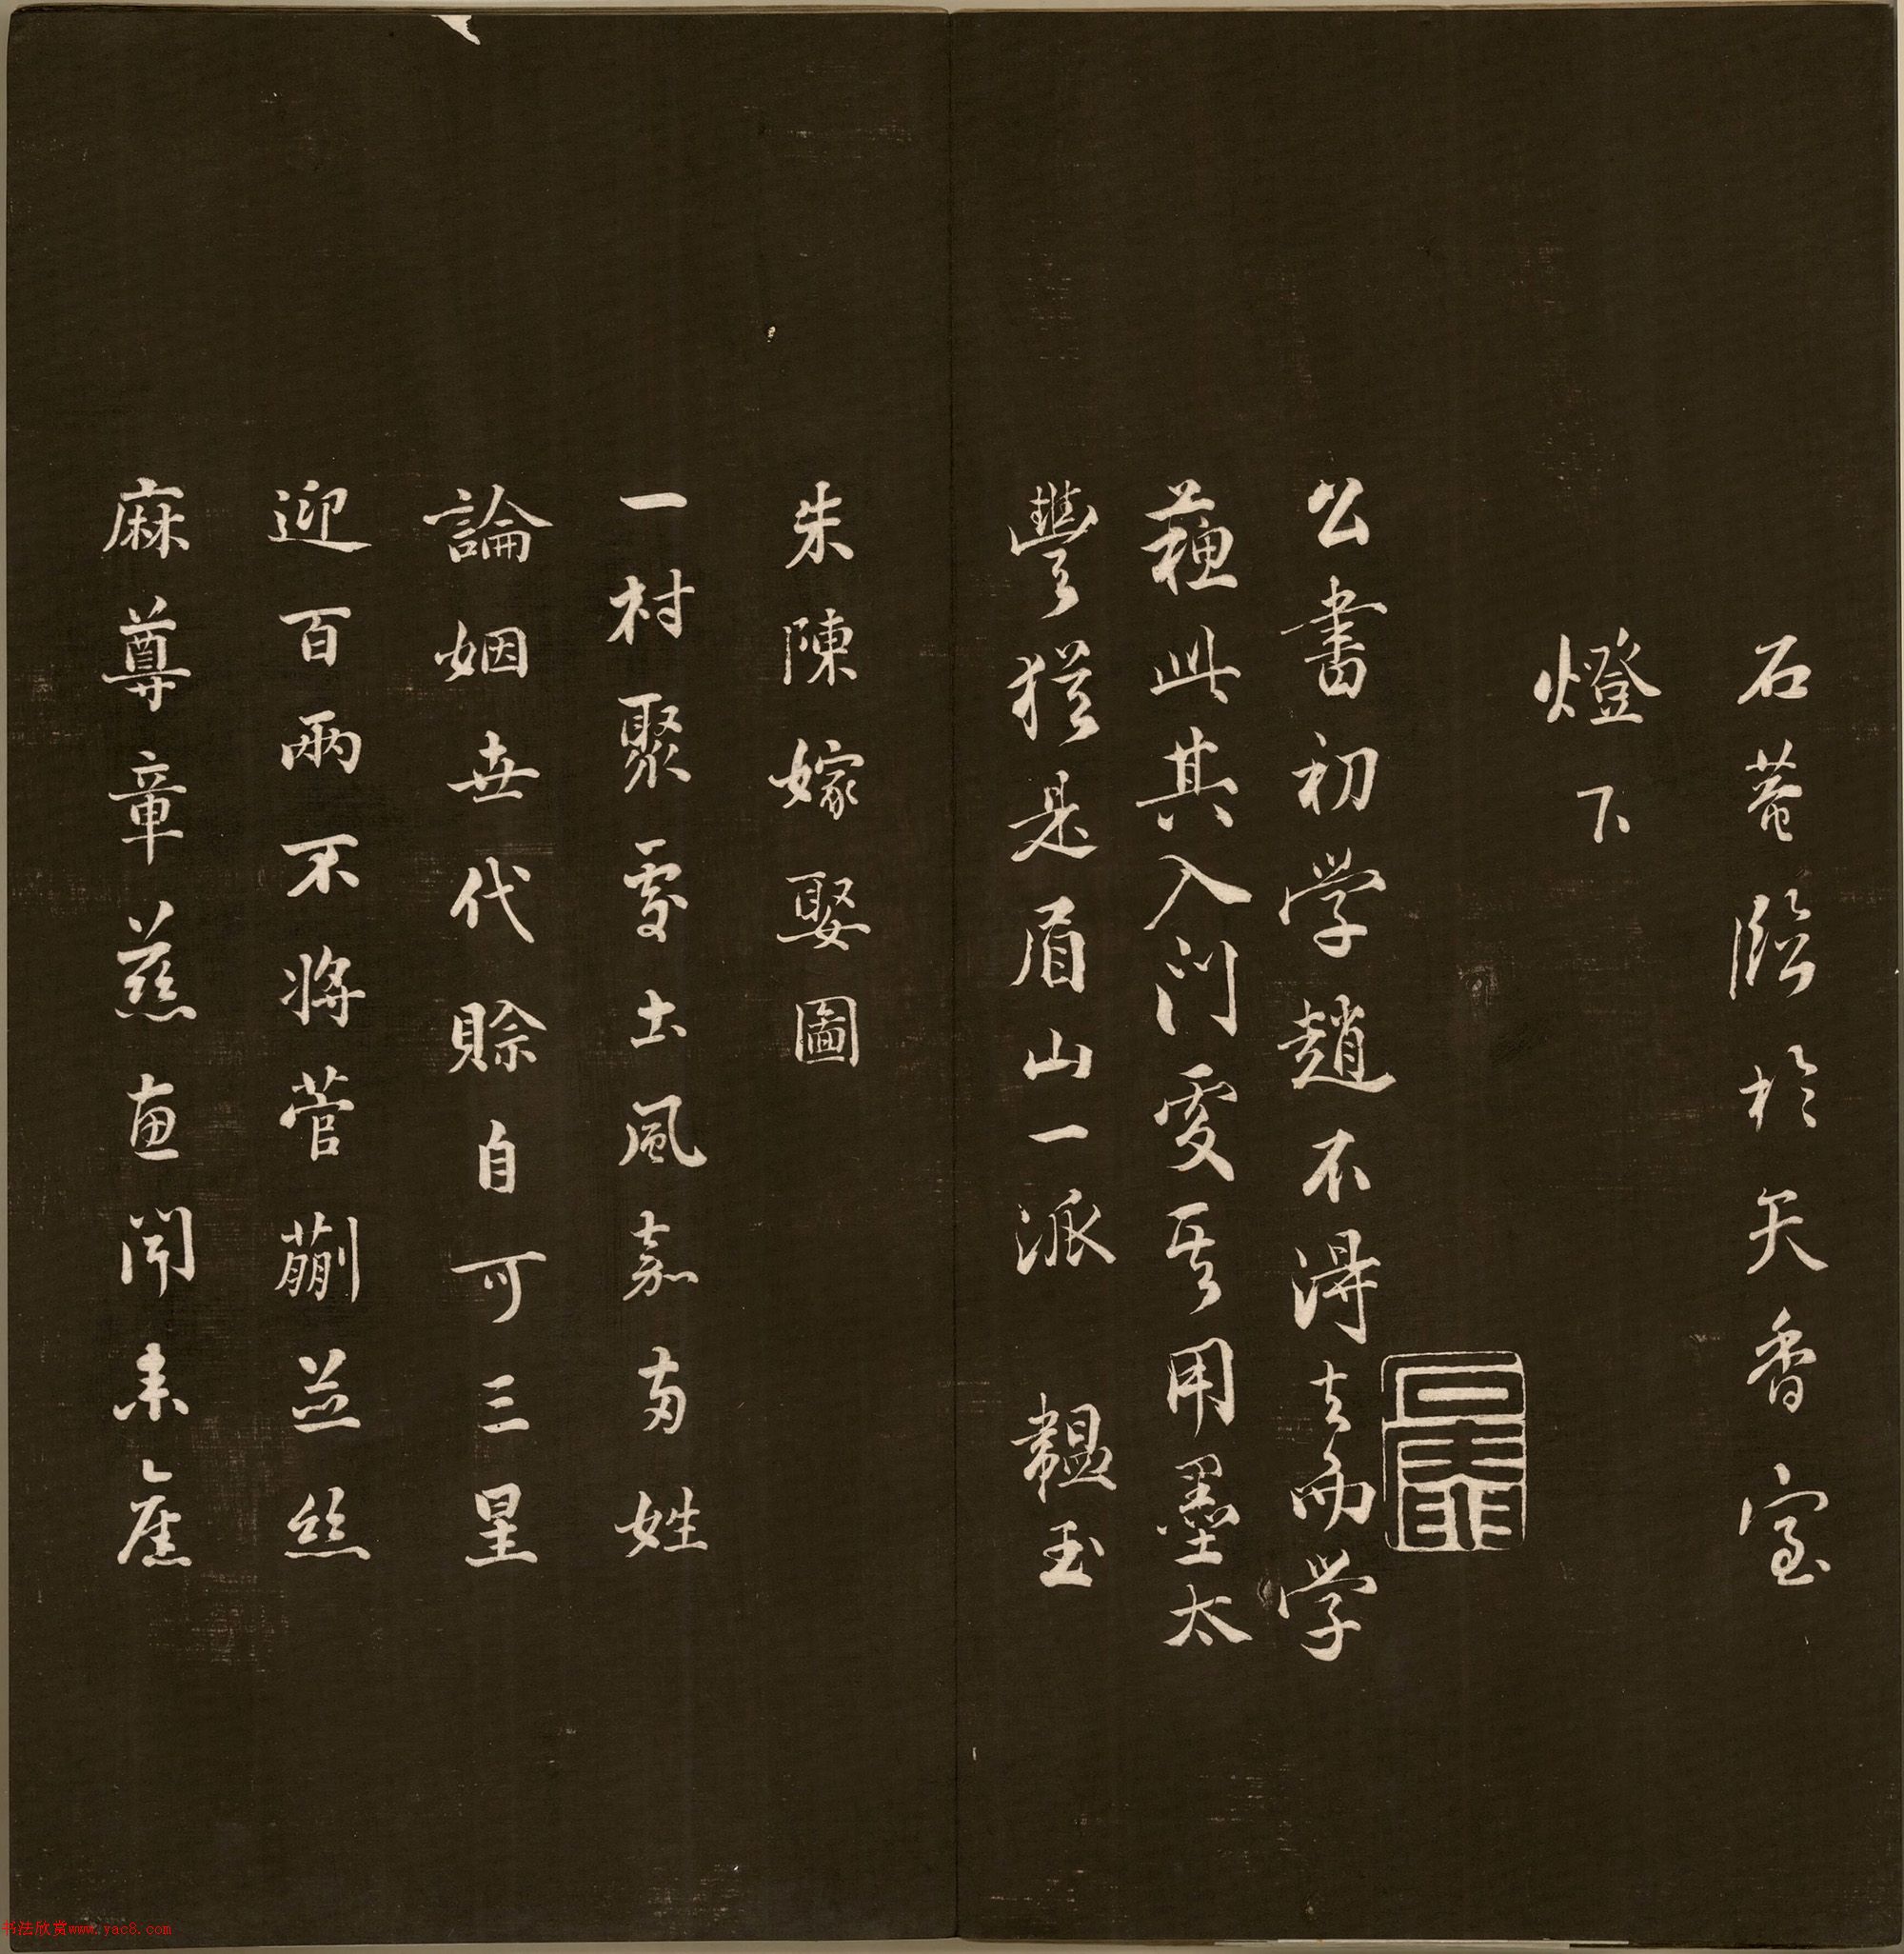 石菴臨於天香室
燈下
公書初学趙不得去而学
蘓此其入門處其用墨太
豐猶是眉山一派 韞玉
朱陳嫁娶圖
一村聚處土風嘉两姓
論姻世代賒自可三星
迎百兩不將菅蒯並絲
麻尊章慈惠聞未舊
书法欣赏www.yac8.com